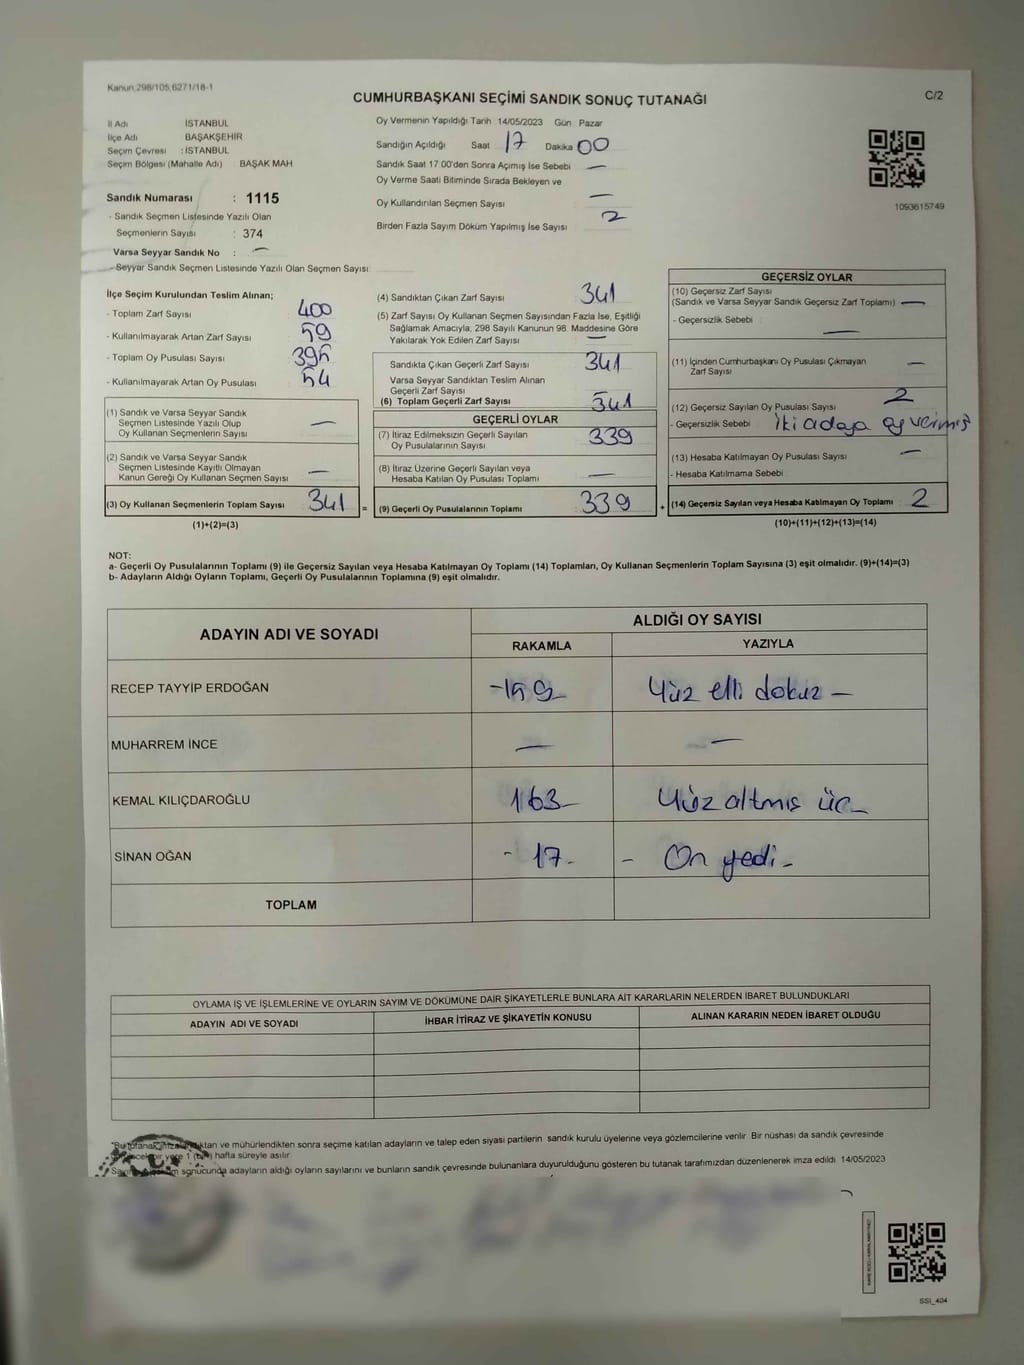 Kanun,298/105,6271/18-1
CUMHURBAŞKANI SEÇİMİ SANDIK SONUÇ TUTANAĞI
C/2
İl Adı İSTANBUL
İlçe Adı BAŞAKŞEHİR
Seçim Çevresi : İSTANBUL
Seçim Bölgesi (Mahalle Adı) : BAŞAK MAH
Sandık Numarası : 1115
- Sandık Seçmen Listesinde Yazılı Olan
Seçmenlerin Sayısı : 374
Varsa Seyyar Sandık No : —
- Seyyar Sandık Seçmen Listesinde Yazılı Olan Seçmen Sayısı:
Oy Vermenin Yapıldığı Tarih 14/05/2023 Gün Pazar
Sandığın Açıldığı Saat 17 Dakika 00
Sandık Saat 17 00'den Sonra Açımış İse Sebebi —
Oy Verme Saati Bitiminde Sırada Bekleyen ve
Oy Kullandırılan Seçmen Sayısı —
Birden Fazla Sayım Döküm Yapılmış İse Sayısı 2
1093615749
İlçe Seçim Kurulundan Teslim Alınan;
- Toplam Zarf Sayısı 400
- Kullanılmayarak Artan Zarf Sayısı 59
- Toplam Oy Pusulası Sayısı 395
- Kullanılmayarak Artan Oy Pusulası 54
(1) Sandık ve Varsa Seyyar Sandık
Seçmen Listesinde Yazılı Olup
Oy Kullanan Seçmenlerin Sayısı —
(2) Sandık ve Varsa Seyyar Sandık
Seçmen Listesinde Kayıtlı Olmayan
Kanun Gereği Oy Kullanan Seçmen Sayısı —
(3) Oy Kullanan Seçmenlerin Toplam Sayısı 341 =
(1)+(2)=(3)
(4) Sandıktan Çıkan Zarf Sayısı 341
(5) Zarf Sayısı Oy Kullanan Seçmen Sayısından Fazla İse, Eşitliği
Sağlamak Amacıyla, 298 Sayılı Kanunun 98. Maddesine Göre
Yakılarak Yok Edilen Zarf Sayısı —
Sandıkta Çıkan Geçerli Zarf Sayısı 341
Varsa Seyyar Sandıktan Teslim Alınan
Geçerli Zarf Sayısı
(6) Toplam Geçerli Zarf Sayısı 341
GEÇERLİ OYLAR
(7) İtiraz Edilmeksizin Geçerli Sayılan
Oy Pusulalarının Sayısı 339
(8) İtiraz Üzerine Geçerli Sayılan veya
Hesaba Katılan Oy Pusulası Toplamı —
(9) Geçerli Oy Pusulalarının Toplamı 339 +
GEÇERSİZ OYLAR
(10) Geçersiz Zarf Sayısı
(Sandık ve Varsa Seyyar Sandık Geçersiz Zarf Toplamı) —
- Geçersizlik Sebebi —
(11) İçinden Cumhurbaşkanı Oy Pusulası Çıkmayan
Zarf Sayısı —
(12) Geçersiz Sayılan Oy Pusulası Sayısı 2
- Geçersizlik Sebebi iki adaya oy vermiş
(13) Hesaba Katılmayan Oy Pusulası Sayısı —
- Hesaba Katılmama Sebebi
(14) Geçersiz Sayılan veya Hesaba Katılmayan Oy Toplamı 2
(10)+(11)+(12)+(13)=(14)
NOT:
a- Geçerli Oy Pusulalarının Toplamı (9) ile Geçersiz Sayılan veya Hesaba Katılmayan Oy Toplamı (14) Toplamları, Oy Kullanan Seçmenlerin Toplam Sayısına (3) eşit olmalıdır. (9)+(14)=(3)
b- Adayların Aldığı Oyların Toplamı, Geçerli Oy Pusulalarının Toplamına (9) eşit olmalıdır.
ADAYIN ADI VE SOYADI ALDIĞI OY SAYISI
RAKAMLA YAZIYLA
RECEP TAYYİP ERDOĞAN -159- Yüz elli dokuz —
MUHARREM İNCE — —
KEMAL KILIÇDAROĞLU 163- Yüz altmış üç -
SİNAN OĞAN - 17 - - On yedi -
TOPLAM
OYLAMA İŞ VE İŞLEMLERİNE VE OYLARIN SAYIM VE DÖKÜMÜNE DAİR ŞİKAYETLERLE BUNLARA AİT KARARLARIN NELERDEN İBARET BULUNDUKLARI
ADAYIN ADI VE SOYADI İHBAR İTİRAZ VE ŞİKAYETİN KONUSU ALINAN KARARIN NEDEN İBARET OLDUĞU
ve mühürlendikten sonra seçime katılan adayların ve talep eden siyasi partilerin sandık kurulu üyelerine veya gözlemcilerine verilir Bir nüshası da sandık çevresinde
hafta süreyle asılır
sonucunda adayların aldığı oyların sayılarını ve bunların sandık çevresinde bulunanlara duyurulduğunu gösteren bu tutanak tarafımızdan düzenlenerek imza edildi. 14/05/2023
SSI_404